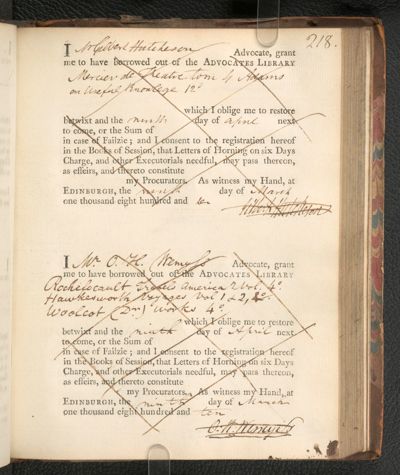 218.
I Mr Gilbert Hutcheson Advocate, grant
me to have borrowed out of the ADVOCATES LIBRARY
Mercier du Theatre tom 4 Adams
on Useful Knowledge 12o
which I oblige me to restore
betwixt and the ninth day of April next
to come, or the Sum of
in case of Failzie; and I consent to the registration hereof
in the Books of Session, that Letters of Horning on six Days
Charge, and other Executorials needful, may pass thereon,
as effeirs, and thereto constitute
my Procurators. As witness my Hand, at
EDINBURGH, the ninth day of March
one thousand eight hundred and ten
I Mr. O. H. Wemyss Advocate, grant
me to have borrowed out of the ADVOCATES LIBRARY
Rochefocault Travels America 2 Vol. 4o
Hawkesworth Voyages Vol 1 & 2,
Woolcot (Dr.) Works 4o
which I oblige me to restore
betwixt and the ninth day of April next
to come, or the Sum of
in case of Failzie; and I consent to the registration hereof
in the Books of Session, that Letters of Horning on six Days
Charge, and other Executorials needful, may pass thereon,
as effeirs, and thereto constitute
my Procurators. As witness my Hand, at
EDINBURGH, the ninth day of March
one thousand eight hundred and ten
O. H. Wemyss